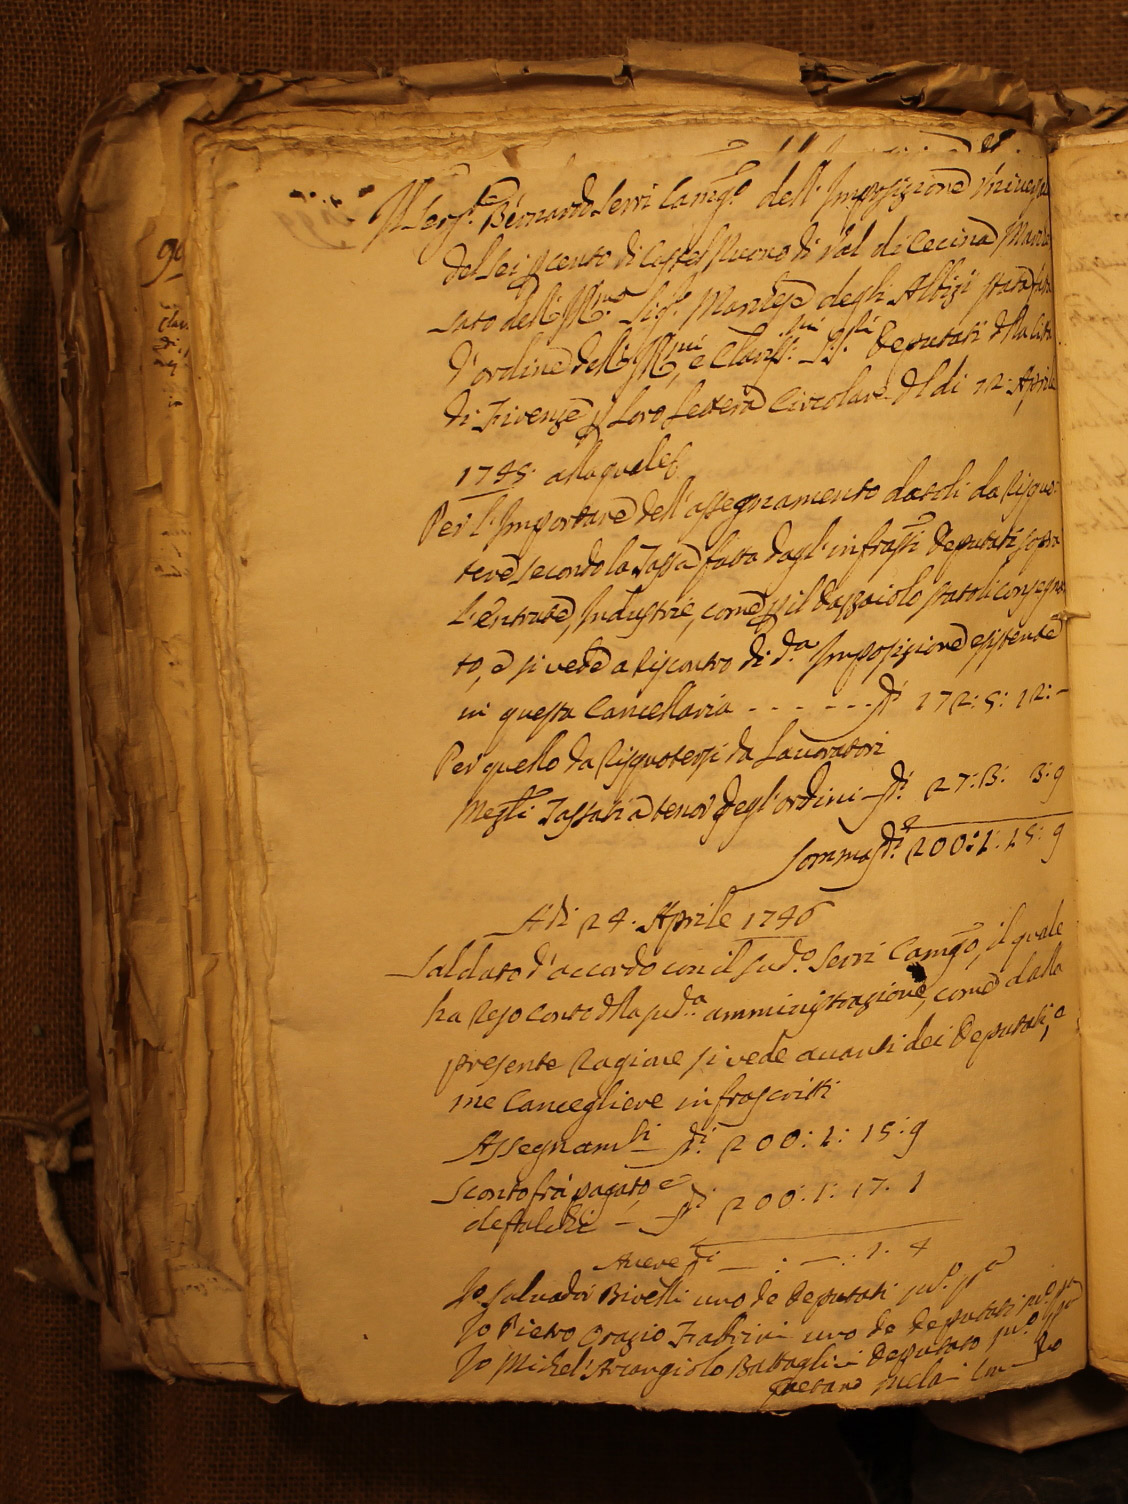 Il Serg.te Bernardo Serri Camg.o dell'Imposizione Universale
del sei p cento di Castel Nuovo di Val di Cecina Marche
sato dell'Ill.mo Sig.r Marchese degli Albizi stata fatta
d'ordine delli Ill.mi, e Clariss.mi SS.ri Deputati della Città
di Firenze p loro Lettera Circolare del dì 12: Aprile
1745: alla quale
Per l'Importare dell'assegnamento datoli da Risquo-
tere secondo la Tassa fatta dagl'infrass.ti Deputati sopra
l'Entrate, Industrie, come p il Dazzaiolo statoli consegna
to, e si vede a riscontro di d.a Imposizione esistente
in questa Cancellaria - - - - - - D.i 172: 5: 12: -
Per quello da Risquotersi da Lavoratori
Mezz.li Tassati a tenor degl'ordini - D.i 27: 3: 3: 9
Somma D.i 200: 1: 15: 9
A dì 24. Aprile 1746
Saldato d'accordo con il sud.o Serri Camg.o, il quale
ha reso conto della sud.a amministrazione, come dalla
presente Ragione si vede avanti dei Deputati, e
me Cancegliere infrascritti
Assegnam.ti D.i 200: 1: 15: 9
Sconto frà pagato, e
defalchi - D.i 200: 1: 17. 1
Avere D.i - : - : 1. 4
Io Salvador Bivelli uno de Deputati
Io Pietro Orazio Fabrini uno de deputati
Io Michel'Arcangiolo Battaglini Deputato
Gaetano